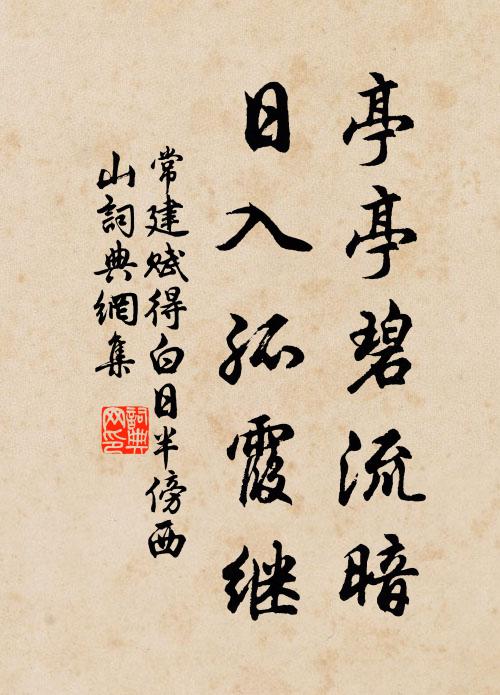 亭亭碧流暗
日入孤霞继
常建赋得白日半傍西
山詞典網集
詞典
网印